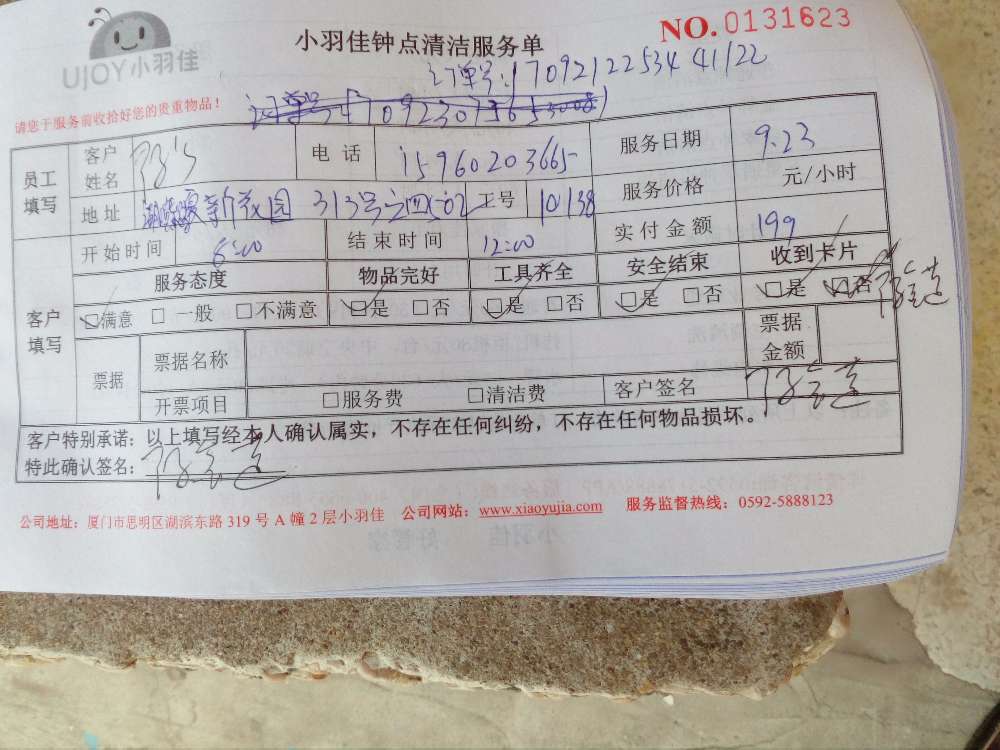 UJOY小羽佳
小羽佳钟点清洁服务单
NO.0131623
订单号:1709212253441/22
请您于服务前收拾好您的贵重物品!
员工填写 客户姓名 电话 15960203665 服务日期 9.23
服务价格 元/小时
地址 313号之四502 工号 10138
实付金额 199
开始时间 8:00 结束时间 12:00
客户填写 服务态度 物品完好 工具齐全 安全结束 收到卡片
☑满意 □一般 □不满意 ☑是 □否 ☑是 □否 ☑是 □否 ☑是 ☑否
票据 票据名称 票据金额
开票项目 □服务费 □清洁费 客户签名
客户特别承诺:以上填写经本人确认属实,不存在任何纠纷,不存在任何物品损坏。
特此确认签名:
公司地址:厦门市思明区湖滨东路 319 号 A 幢 2 层小羽佳 公司网站:www.xiaoyujia.com 服务监督热线:0592-5888123